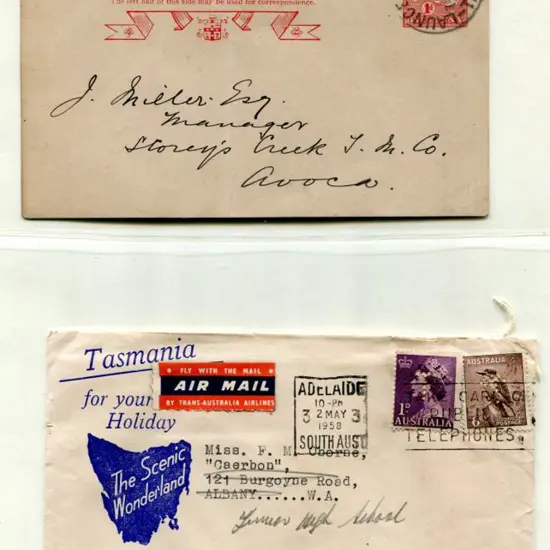 The left half of this side may be used for correspondence.
1D
LAUNCES
J. Miller Esq.
Manager
Storey's Creek T. M. Co.
Avoca.
Tasmania
for your
Holiday
The Scenic
Wonderland
FLY WITH THE MAIL
AIR MAIL
BY TRANS-AUSTRALIA AIRLINES
ADELAIDE
10-PM
3 2 MAY 3
1958
SOUTH AUST
1D
AUSTRALIA
AUSTRALIA
6D
TAKE CARE
PUBLIC
TELEPHONES
Miss. F. M. Oborne,
"Caerbon",
121 Burgoyne Road,
ALBANY......W.A.
Senior High School